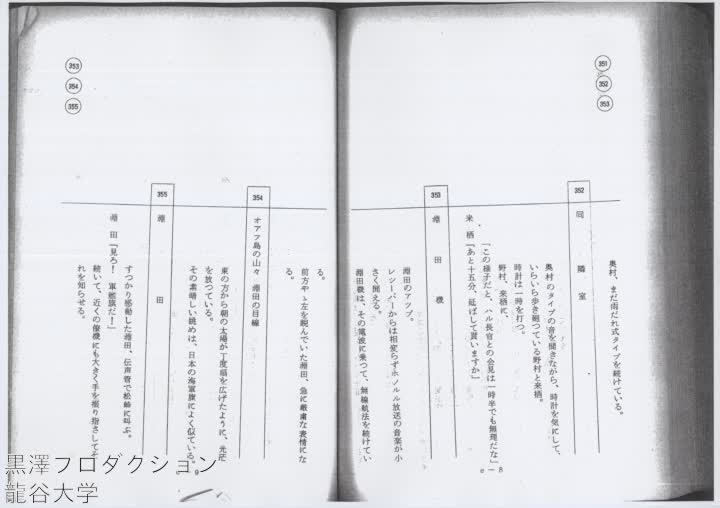 351
352
353
奥村、まだ雨だれ式タイプを続けている。
352
同 隣室
奥村のタイプの音を聞きながら、時計を気にして、
いらいら歩き廻つている野村と来栖。
時計は一時を打つ。
野村、来栖に、
「この様子だと、ハル長官との会見は一時半でも無理だな」
来 栖「あと十五分、延ばして貰いますか」
353
淵田機
淵田のアップ。
レシーバーからは相変らずホノルル放送の音楽が小
さく聞える。
淵田機は、その電波に乗つて、無線航法を続けてい
e－8
353
354
355
る。
前方やゝ左を睨んでいた淵田、急に厳粛な表情にな
る。
354
オアフ島の山々 淵田の目線
東の方から朝の太陽が丁度扇を広げたように、光芒
を放つている。
その素晴しい眺めは、日本の海軍旗によく似ている。
355
淵田
すつかり感動した淵田、伝声管で松崎に叫ぶ。
淵 田「見ろ! 軍艦旗だ!」
続いて、近くの僚機にも大きく手を振り指さしてそ
れを知らせる。
黒澤プロダクション
龍谷大学